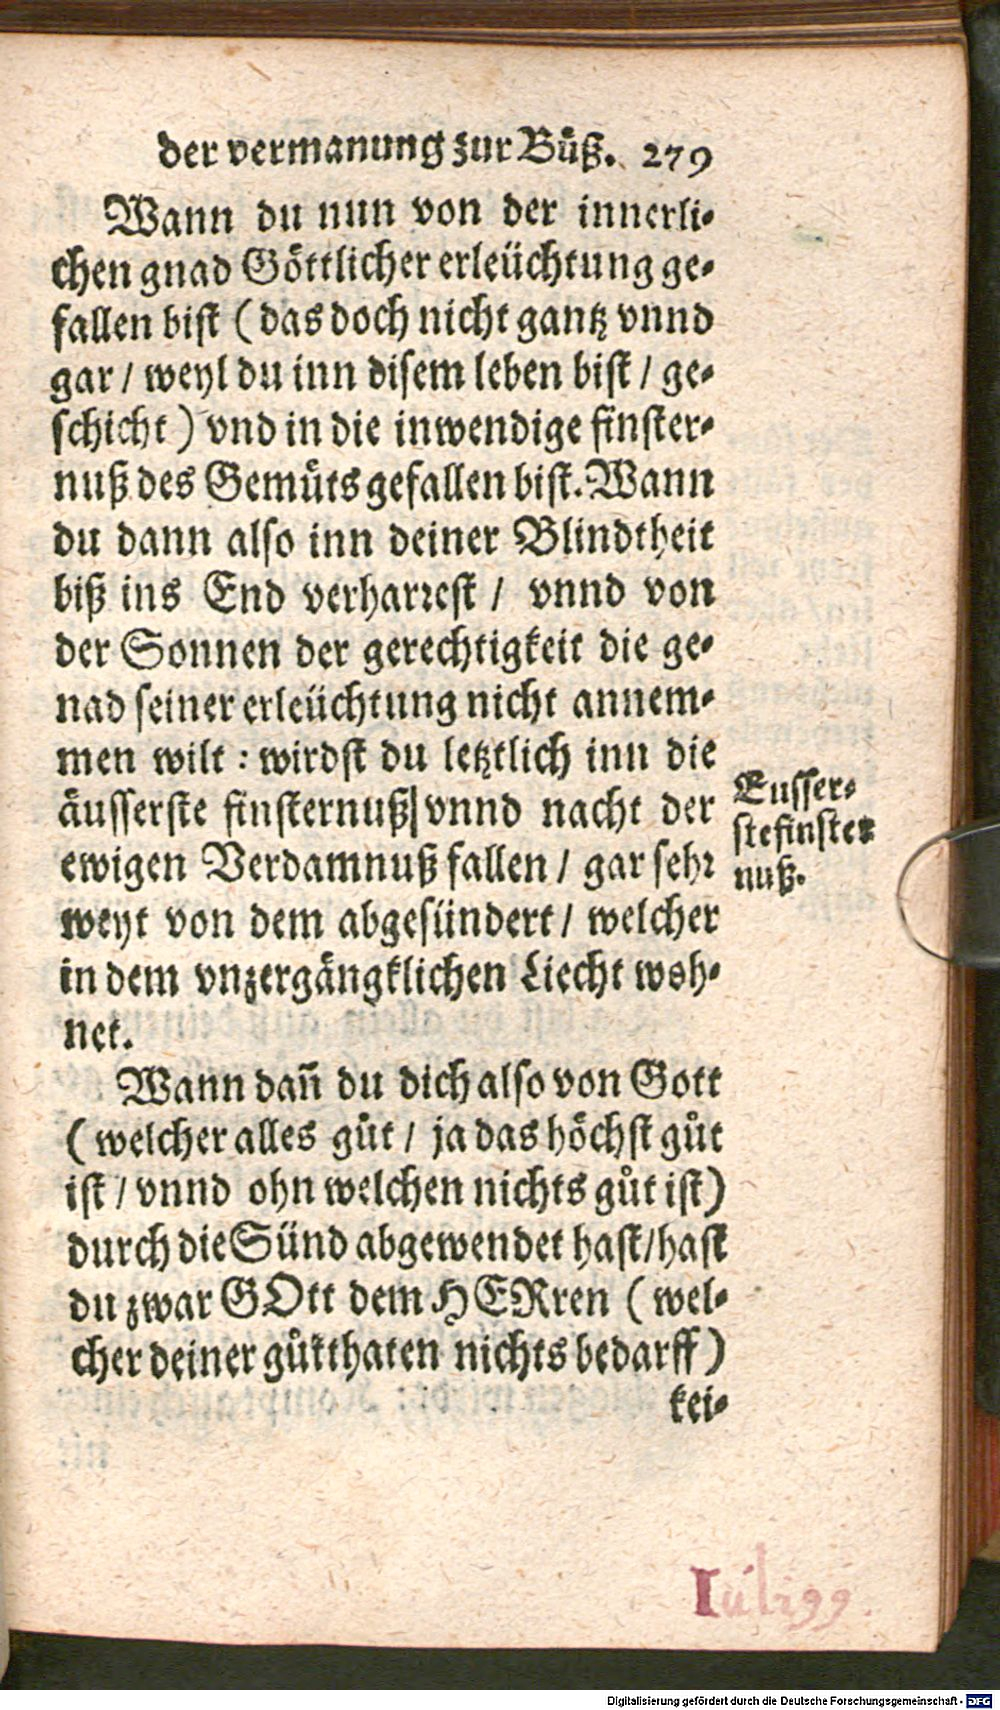 der vermanung zur Bůß. 279
Wann du nun von der innerli-
chen gnad Göttlicher erleüchtung ge-
fallen bist (das doch nicht gantz vnnd
gar / weyl du inn disem leben bist / ge-
schicht) vnd in die inwendige finster-
nuß des Gemůts gefallen bist. Wann
du dann also inn deiner Blindtheit
biß ins End verharrest / vnnd von
der Sonnen der gerechtigkeit die ge-
nad seiner erleüchtung nicht annem-
men wilt : wirdst du letztlich inn die
äusserste finsternuß/ vnnd nacht der
ewigen Verdamnuß fallen / gar sehr
weyt von dem abgesündert / welcher
in dem vnzergängklichen Liecht woh-
net.
Eusser-
ste finster
nuß.
Wann dañ du dich also von Gott
(welcher alles gůt / ja das höchst gůt
ist / vnnd ohn welchen nichts gůt ist)
durch die Sünd abgewendet hast/hast
du zwar GOtt dem HERren (wel-
cher deiner gůtthaten nichts bedarff)
kei-
Digitalisierung gefördert durch die Deutsche Forschungsgemeinschaft - DFG